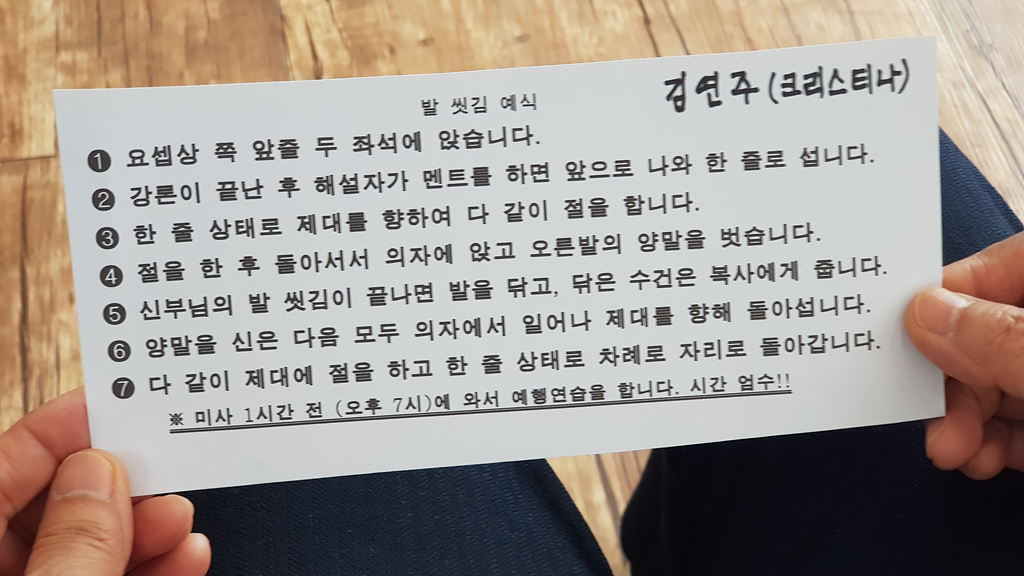 발 씻김 예식
김연주(크리스티나)
❶ 요셉상 쪽 앞줄 두 좌석에 앉습니다.
❷ 강론이 끝난 후 해설자가 멘트를 하면 앞으로 나와 한 줄로 섭니다.
❸ 한 줄 상태로 제대를 향하여 다 같이 절을 합니다.
❹ 절을 한 후 돌아서서 의자에 앉고 오른발의 양말을 벗습니다.
❺ 신부님의 발 씻김이 끝나면 발을 닦고, 닦은 수건은 복사에게 줍니다.
❻ 양말을 신은 다음 모두 의자에서 일어나 제대를 향해 돌아섭니다.
❼ 다 같이 제대에 절을 하고 한 줄 상태로 차례로 자리로 돌아갑니다.
※ 미사 1시간 전 (오후 7시)에 와서 예행연습을 합니다. 시간 엄수!!